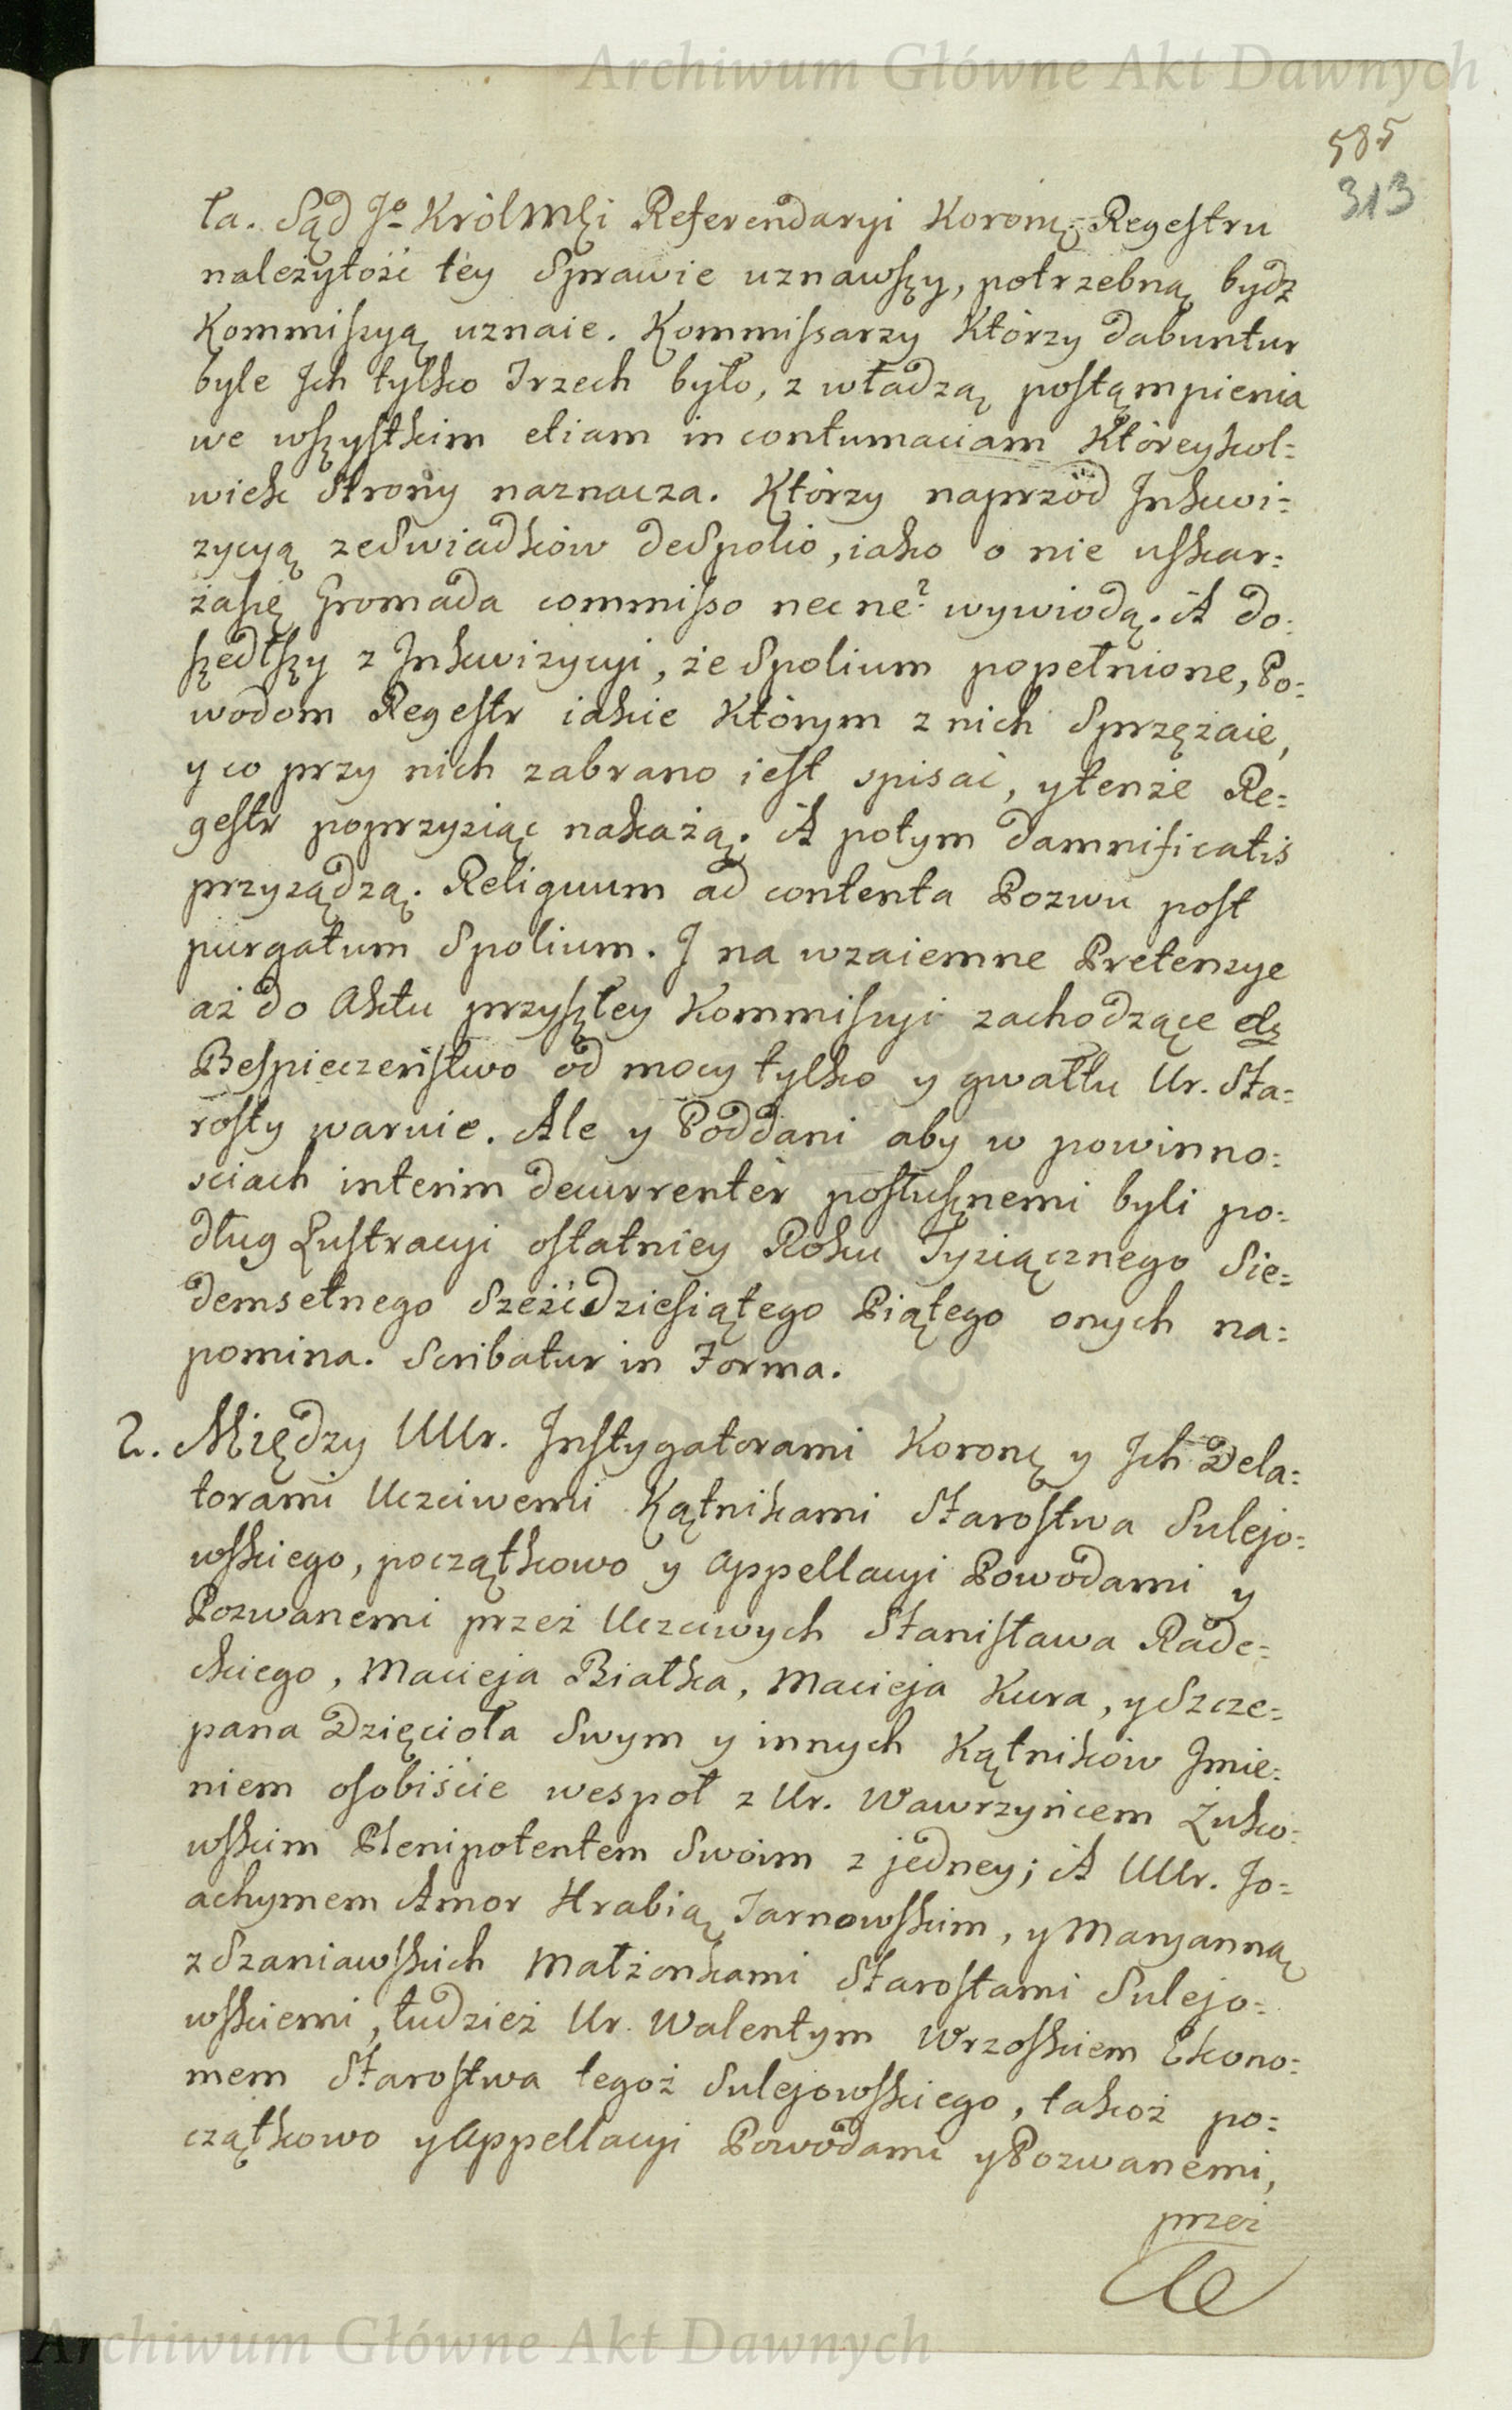 Archiwum Główne Akt Dawnych
585
313
ta. Sąd Jº KrólMści Referendaryi Koronę: Regestru
należytość tey Sprawie uznawszy, potrzebną bydz
Kommissyą uznaie. Kommissarzy Którzy dabuntur
byle Jch tylko Trzech było, z władzą postąmpienia
we wszystkim etiam in contumaciam Któreykol=
wiek Strony naznacza. Którzy naprzód Jnkwi=
zycyą ze Swiadków de Spolio, iako o nie uskar=
żasię Gromada commisso nec ne? wywiodą. A do=
szedłszy z Jnkwizycyi, że Spolium popełnione, Po=
wodom Regestr iakie Którym z nich Sprzężaie,
y co przy nich zabrano iest spisać, y tenże Re=
gestr poprzysiąc nakażą. A potym damnificatis
przysądzą. Reliquum ad contenta Pozwu post
purgatum Spolium. J na wzaiemne Pretensye
aż do Aktu przyszłey Kommissyi zachodzące
Bespieczeństwo od mocy tylko y gwałtu Ur. Sta=
rosty waruie. Ale y Poddani aby w powinno=
sciach interim decurrenter posłusznemi byli po=
dług Lustracyi ostatniey Roku Tysiącznego Sie=
demsetnego Sześćdziesiątego Piątego onych na=
pomina. Scribatur in Forma.
2. Między UUr. Jnstygatorami Koronę y Jch Dela=
torami Uczciwemi Kątnikami Starostwa Sulejo=
wskiego, początkowo y Appellacyi Powodami y
Pozwanemi przez Uczciwych Stanisława Rade=
ckiego, Macieja Białka, Macieja Kura, y Szcze=
pana Dzięcioła Swym y innych Kątników Jmie=
niem osobiście wespoł z Ur. Wawrzyńcem Żuko=
wskim Plenipotentem Swoim z jedney; A UUr. Jo=
achymem Amor Hrabią Tarnowskim, y Maryanną
z Szaniawskich Małżonkami Starostami Sulejo=
wskiemi, tudzież Ur. Walentym Wrzoskiem Ekono=
mem Starostwa tegoż Sulejowskiego, takoż po=
czątkowo y Appellacyi Powodami y Pozwanemi,
przez
Archiwum Główne Akt Dawnych